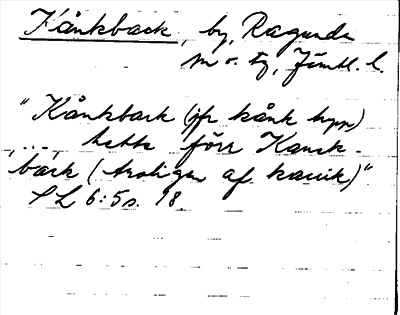 Kånkback, by, Ragunda
sn o. tg, Jämtl. l.
"Kånkback (jfr kånk topp)
, ... , hette förr Kanik-
bäck (troligen af kanik)"
SL 6:5 s. 18